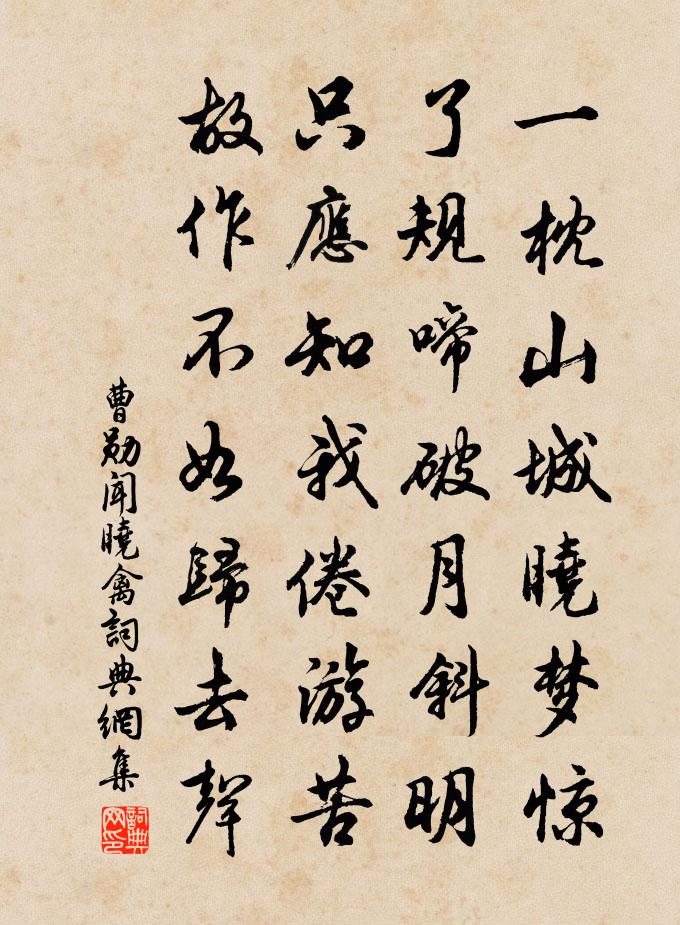 一枕山城曉梦惊
了規啼破月斜明
只應知我倦游苦
故作不如歸去聲
曹勋聞曉禽詞典網集
詞典网印